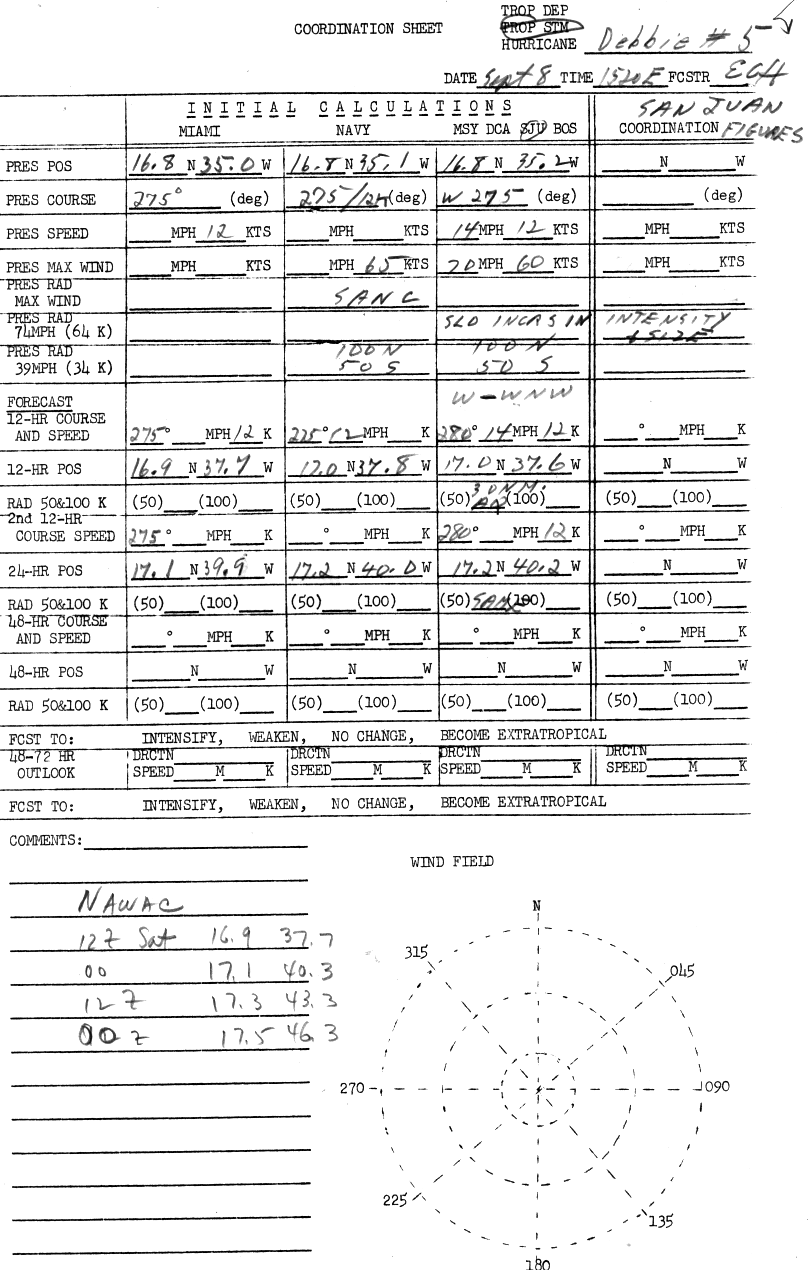 TROP DEP
COORDINATION SHEET TROP STM
HURRICANE Debbie # 5
DATE Sept 8 TIME 1520 E FCSTR
I N I T I A L C A L C U L A T I O N S SAN JUAN
MIAMI NAVY MSY DCA SJU BOS COORDINATION FIGURES
PRES POS 16.8 N 35.0 W 16.8 N 35.1 W 16.8 N 35.2 W N W
PRES COURSE 275° (deg) 275/12K (deg) W 275 (deg) (deg)
PRES SPEED MPH 12 KTS MPH KTS 14 MPH 12 KTS MPH KTS
PRES MAX WIND MPH KTS MPH 65 KTS 70 MPH 60 KTS MPH KTS
PRES RAD
MAX WIND SAN C
PRES RAD SLO INCRS IN INTENSITY
74MPH (64 K) & SIZE
PRES RAD 100 N 100 N
39MPH (34 K) 50 S 50 S
W - WNW
FORECAST
12-HR COURSE
AND SPEED 275° MPH 12 K 275° 12 MPH K 280° 14 MPH 12 K ° MPH K
12-HR POS 16.9 N 37.7 W 17.0 N 37.8 W 17.0 N 37.6 W N W
30 NM
RAD 50&100 K (50) (100) (50) (100) (50) (100) (50) (100)
2nd 12-HR
COURSE SPEED 275° MPH K ° MPH K 280° MPH 12 K ° MPH K
24-HR POS 17.1 N 39.9 W 17.2 N 40.0 W 17.2 N 40.2 W N W
RAD 50&100 K (50) (100) (50) (100) (50) SAME (100) (50) (100)
48-HR COURSE
AND SPEED ° MPH K ° MPH K ° MPH K ° MPH K
48-HR POS N W N W N W N W
RAD 50&100 K (50) (100) (50) (100) (50) (100) (50) (100)
FCST TO: INTENSIFY, WEAKEN, NO CHANGE, BECOME EXTRATROPICAL
48-72 HR DRCTN DRCTN DRCTN DRCTN
OUTLOOK SPEED M K SPEED M K SPEED M K SPEED M K
FCST TO: INTENSIFY, WEAKEN, NO CHANGE, BECOME EXTRATROPICAL
COMMENTS:
WIND FIELD
NAWAC
12Z Sat 16.9 37.7
00 17.1 40.3
12Z 17.3 43.3
00Z 17.5 46.3
N
315 045
270 090
225 135
180